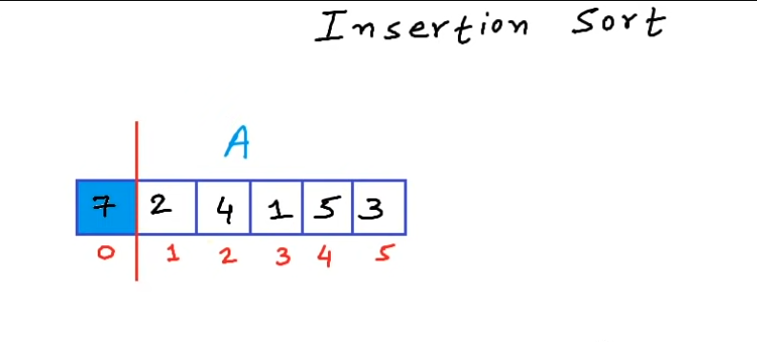 Insertion Sort
A
7 2 4 1 5 3
0 1 2 3 4 5